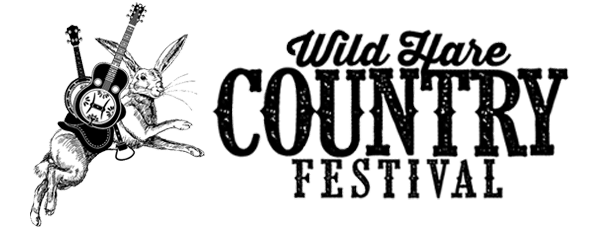 Wild Hare
COUNTRY
FESTIVAL